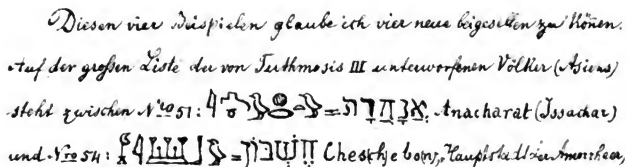 Diesen vier Beispielen glaube ich vier neue beigesellen zu können.
Auf der großen Liste der von Tuthmosis III unterworfenen Völker (Asiens)
steht zwischen Nro 51: = אנחרת, Anacharat (Issachar)
und Nro 54: = חשבון Chesch(e)bon, Hauptstadt der Amoritäer,